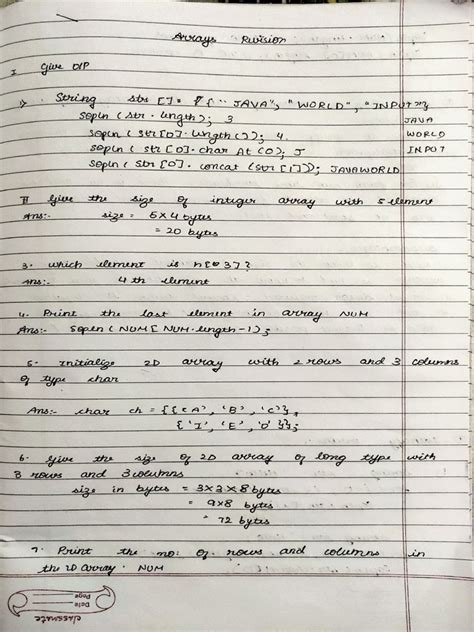 Arrays Revision
I Give O/P
String str []= { "JAVA", "WORLD", "INPUT"};
Sopln (str. length); 3
JAVA
Sopln (str[0]. length()); 4
WORLD
Sopln (str[0]. char At (0); J
INPUT
Sopln (str [0]. concat (str[1])); JAVAWORLD
II Give the size of integer array with 5 element
Ans:- size = 5 x 4 bytes
= 20 bytes
3. which element is n[3]?
Ans:- 4 th element
4. Print the last element in array NUM
Ans:- Sopln (NUM[ NUM. length -1);
5. Initialize 2D array with 2 rows and 3 columns
of type char
Ans:- char ch = {{'A', 'B', 'C'},
{'I', 'E', 'O'}};
6. Give the size of 2D array of long type with
3 rows and 3 columns
size in bytes = 3x3x8 bytes
= 9x8 bytes
= 72 bytes
7. Print the no: of rows and columns in
the 2D array. NUM
classmate
Date
Page